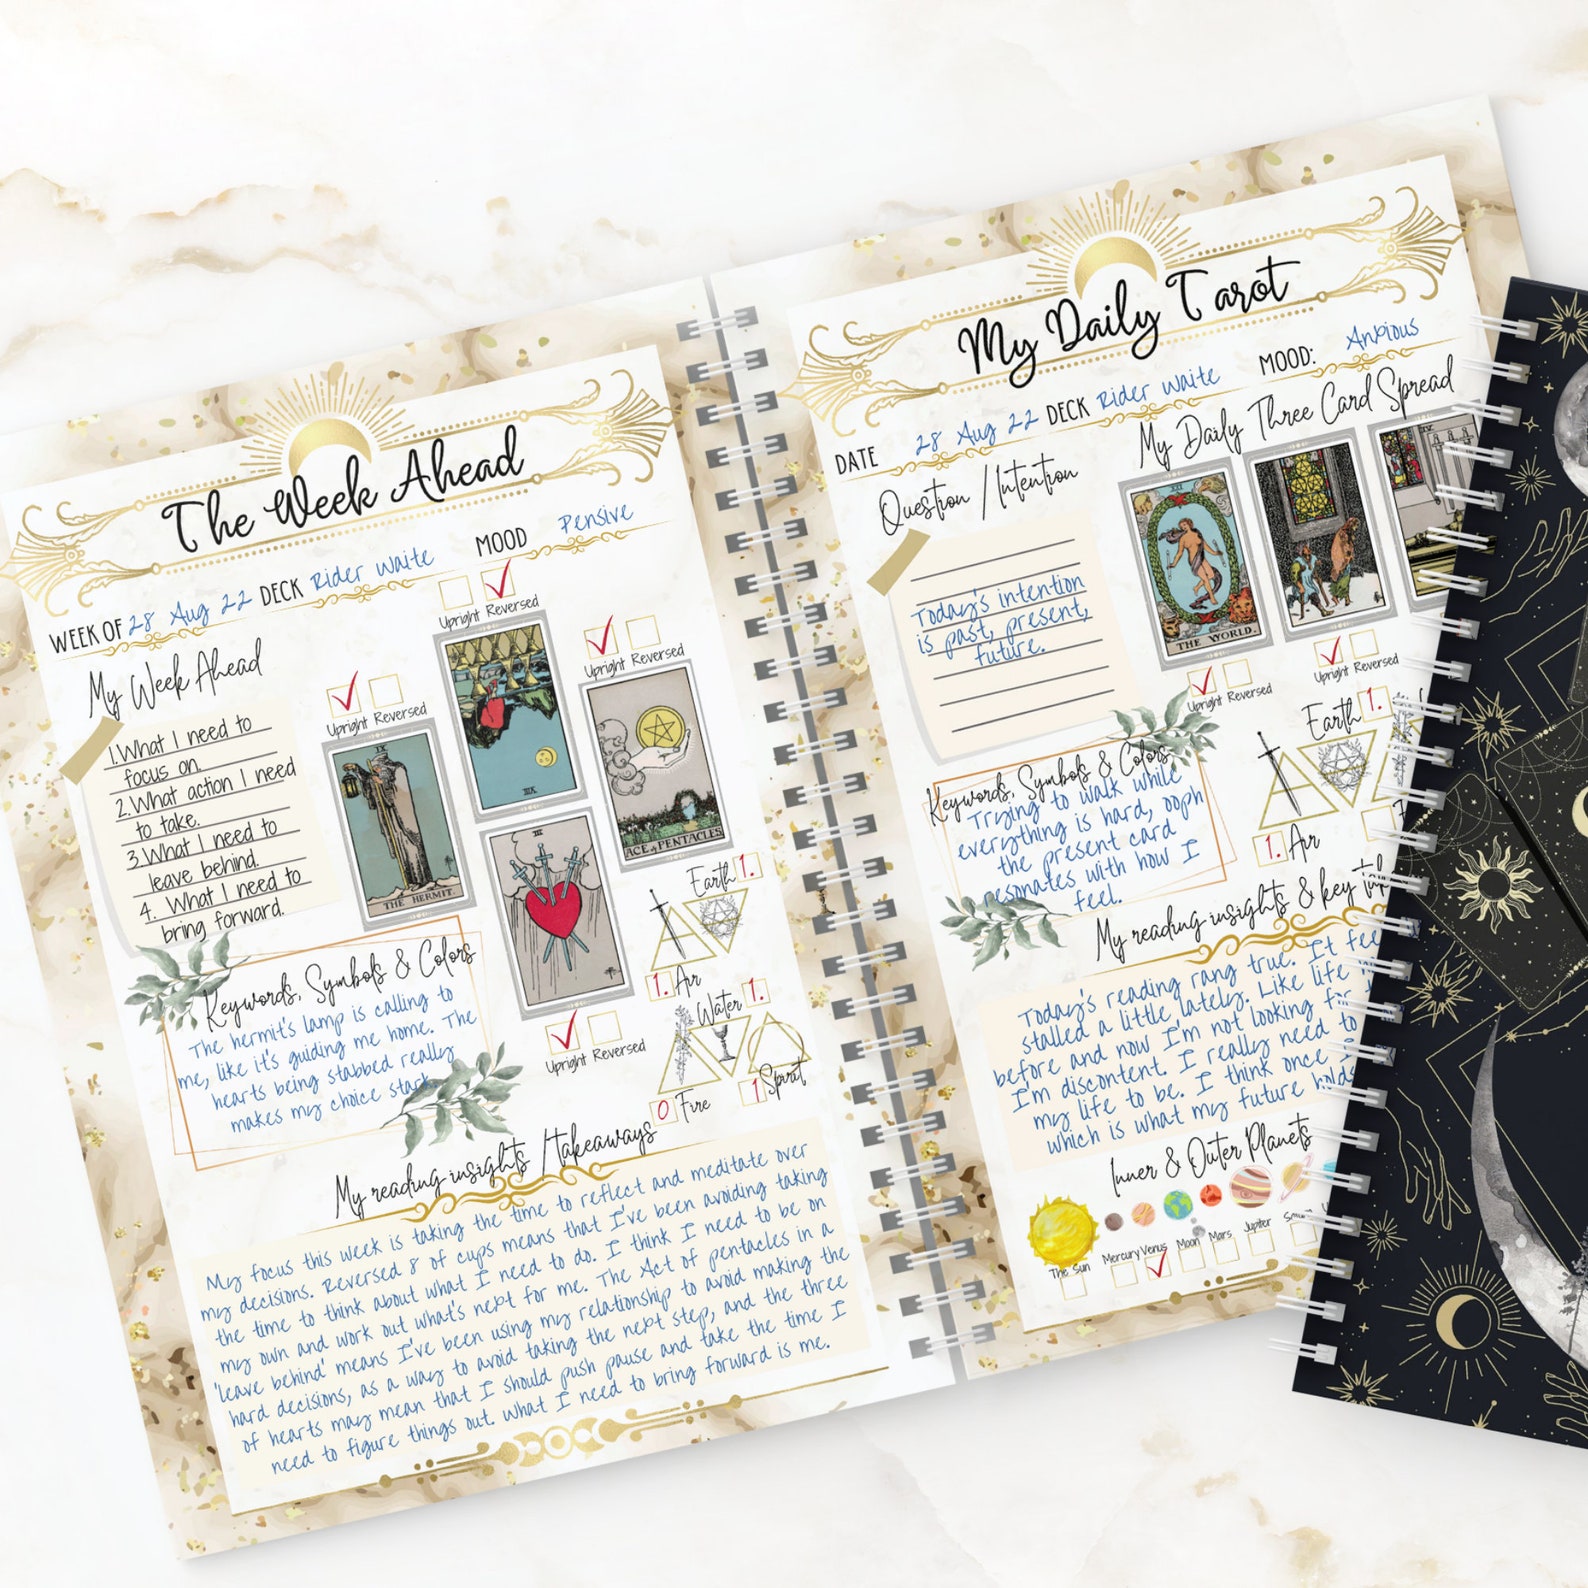 The Week Ahead
WEEK OF 28 Aug 22 DECK Rider Waite MOOD Pensive
My Week Ahead
1. What I need to
focus on.
2. What action I need
to take.
3. What I need to
leave behind.
4. What I need to
bring forward.
Upright Reversed
IX
THE HERMIT.
Upright Reversed
VIII
Upright Reversed
ACE of PENTACLES
III
Upright Reversed
Keywords, Symbols & Colors
The hermit's lamp is calling to
me, like it's guiding me home. The
hearts being stabbed really
makes my choice stark
Earth 1.
1. Air
Water 1.
0 Fire
1 Spirit
My reading insights / takeaways
My focus this week is taking the time to reflect and meditate over
my decisions. Reversed 8 of cups means that I've been avoiding taking
the time to think about what I need to do. I think I need to be on
my own and work out what's next for me. The Act of pentacles in a
'leave behind' means I've been using my relationship to avoid making the
hard decisions, as a way to avoid taking the next step, and the three
of hearts may mean that I should push pause and take the time I
need to figure things out. What I need to bring forward is me.
My Daily Tarot
DATE 28 Aug 22 DECK Rider Waite MOOD: Anxious
Question / Intention
Today's intention
is past, present,
future.
My Daily Three Card Spread
XXI
THE WORLD.
Upright Reversed
Upright Reversed
Keywords, Symbols & Colors
Trying to walk while
everything is hard, ooph
the present card
resonates with how I
feel.
Earth 1.
1. Air
My reading insights & key
Today's reading rang true. It
stalled a little lately. Like life
before and now I'm not looking for
I'm discontent. I really need to
my life to be. I think once I
which is what my future holds
Inner & Outer Planets
The Sun
Mercury
Venus
Moon
Mars
Jupiter